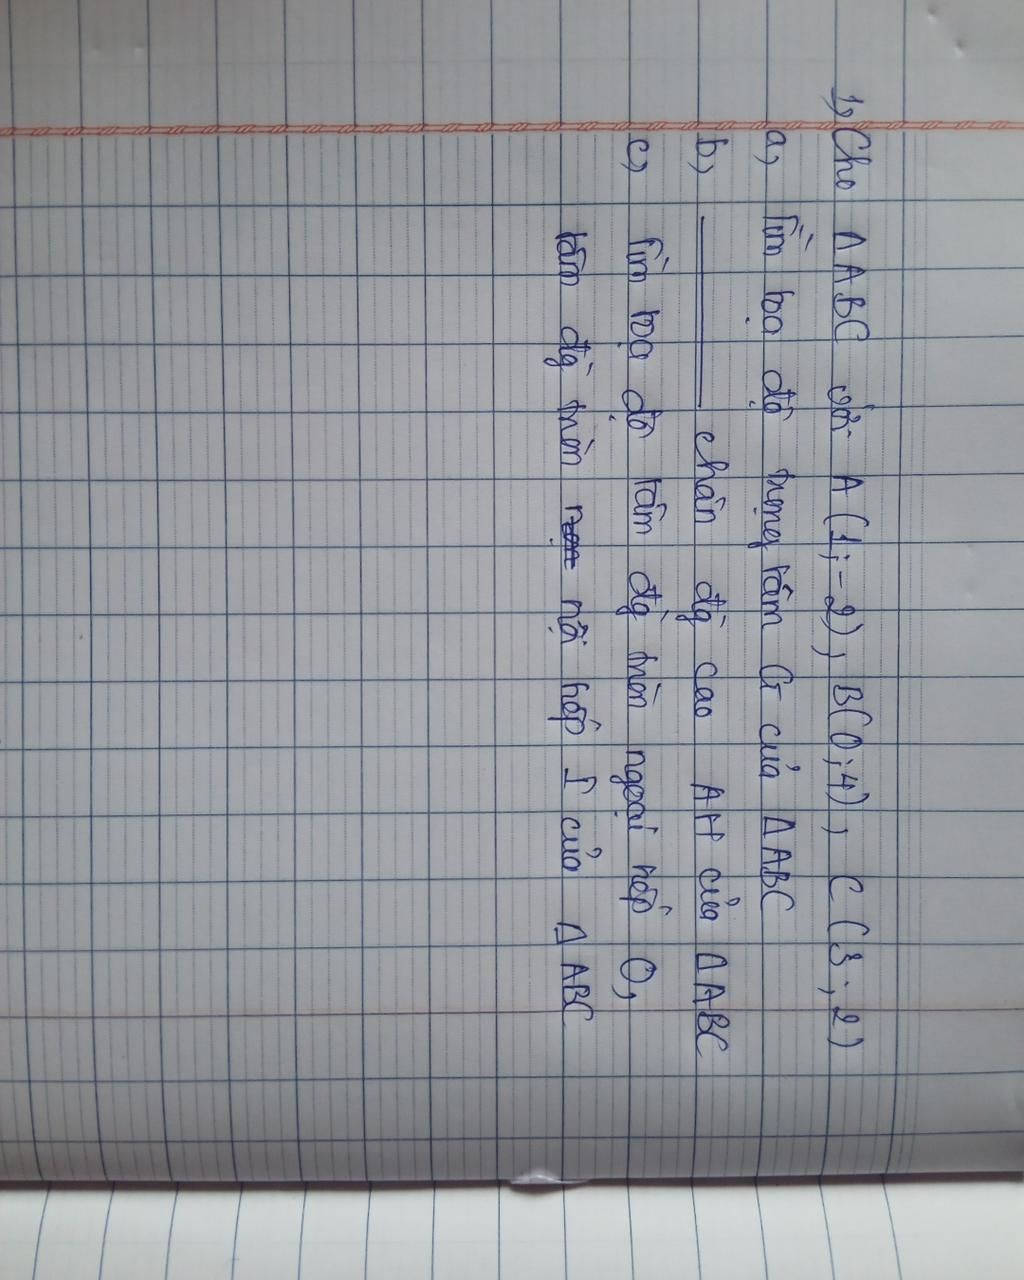 1, Cho ΔABC với A (1; -2), B(0; 4), C (3; 2)
a, Tìm tọa độ trọng tâm G của ΔABC
b, ———— chân đg cao AH của ΔABC
c, Tìm tọa độ tâm đg tròn ngoại tiếp O,
tâm đg tròn nội tiếp I của ΔABC